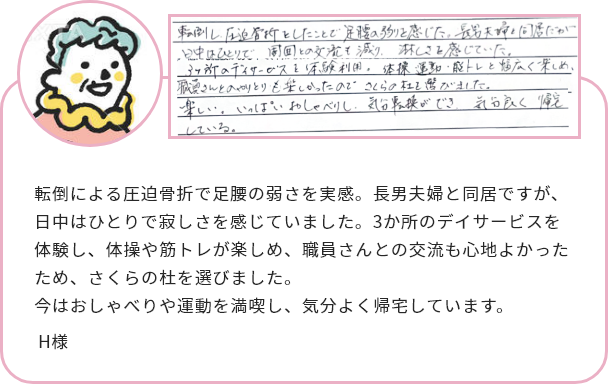 転倒し圧迫骨折をしたことで足腰の弱りを感じた。長男夫婦と同居だが
日中はひとりで、周囲との交流も減り、淋しさを感じていた。
3ヶ所のデイサービスを体験利用。体操、運動・筋トレと幅広く楽しめ、
職員さんとのやりとりも楽しかったのでさくらの杜を選びました。
楽しい。いっぱいおしゃべりし、気分転換ができ、気分良く帰宅
している。
転倒による圧迫骨折で足腰の弱さを実感。長男夫婦と同居ですが、
日中はひとりで寂しさを感じていました。3か所のデイサービスを
体験し、体操や筋トレが楽しめ、職員さんとの交流も心地よかった
ため、さくらの杜を選びました。
今はおしゃべりや運動を満喫し、気分よく帰宅しています。
H様